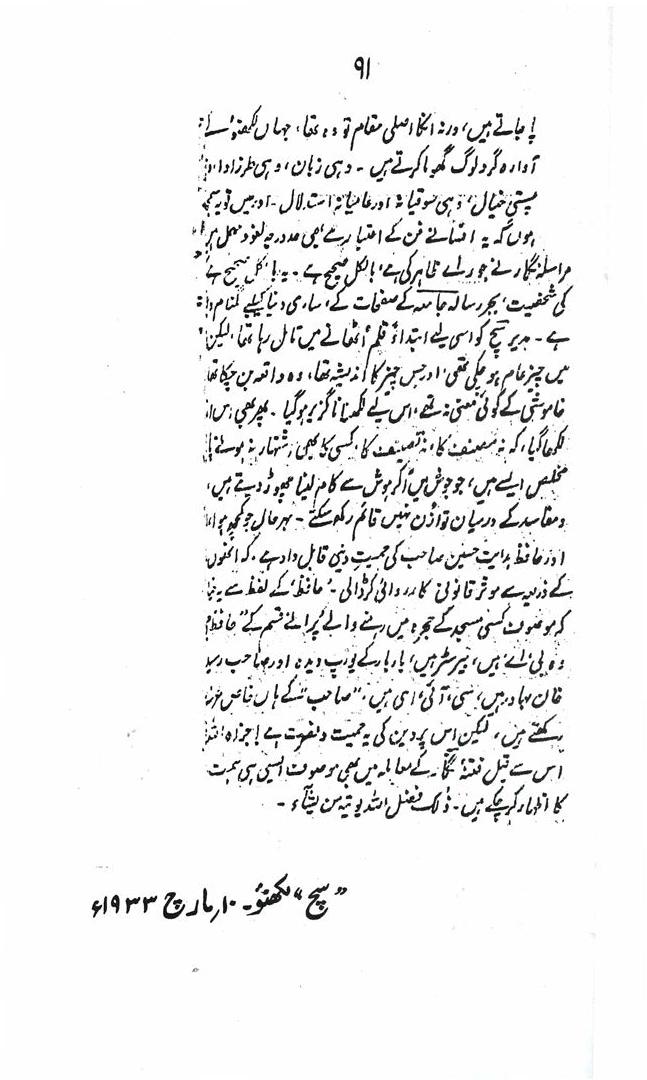 ۹۱
پا جاتے ہیں، ورنہ انکا اصلی مقام تو وہ تھا، جہاں لکھنؤ کے
آوارہ گرد لوگ گھوما کرتے ہیں۔ وہی زبان، وہی طرز ادا
پستیِ خیال، وہی سوقیانہ اور عامیانہ استدلال۔ اور میں تو یہ سمجھ
ہوں کہ یہ افسانے فن کے اعتبار سے بھی حد درجہ لغو و مہمل
مراسلہ نگار نے جو رائے ظاہر کی ہے، بالکل صحیح ہے۔ یہ بالکل صحیح ہے
کی شخصیت، بجز رسالہ جامعہ کے صفحات کے، ساری دنیا کیلیے گمنام
ہے۔ مدیر سچ کو اسی لیے ابتداءً قلم اُٹھانے میں تامل رہا تھا، لیکن
میں چیز عام ہو چکی تھی اور جس چیز کا اندیشہ تھا، وہ واقعہ بن چکا تھا
خاموشی کے کوئی معنی نہ تھے، اس لیے لکھنا ناگزیر ہوگیا۔ پھر بھی
لکھا گیا، کہ نہ مصنف کا، نہ تصنیف کا، کسی کا بھی اشتہار نہ ہونے
مخلص ایسے ہیں، جو جوش میں آکر ہوش سے کام لینا چھوڑ دیتے ہیں،
و مفاسد کے درمیان توازن نہیں قائم رکھ سکتے۔ بہرحال جو کچھ ہوا
اور حافظ ہدایت حسین صاحب کی حمیتِ دینی قابل داد ہے۔ کہ انھوں
کے ذریعہ سے موثر قانونی کارروائی کر ڈالی۔ "حافظ" کے لفظ سے یہ
کہ موصوف کسی مسجد کے حجرہ میں رہنے والے پُرانے قسم کے "حافظ
وہ بی اے ہیں، بیرسٹر ہیں، بار بار کے یورپ دیدہ اور صاحب رسید
خان بہادر ہیں، سی، آئی، ای ہیں، "صاحب" کے ہاں خاص
رکھتے ہیں، لیکن اس پر دین کی یہ حمیت و نصرت ہے! جزاہ اللہ
اس سے قبل فتنۂ نگار کے معاملہ میں بھی موصوف ایسی ہی ہمت
کا اظہار کر چکے ہیں۔ ذٰلک فضل اللہ یوتیہ من یشآء۔
"سچ" لکھنؤ۔ ۱۰ مارچ ۱۹۳۳ء